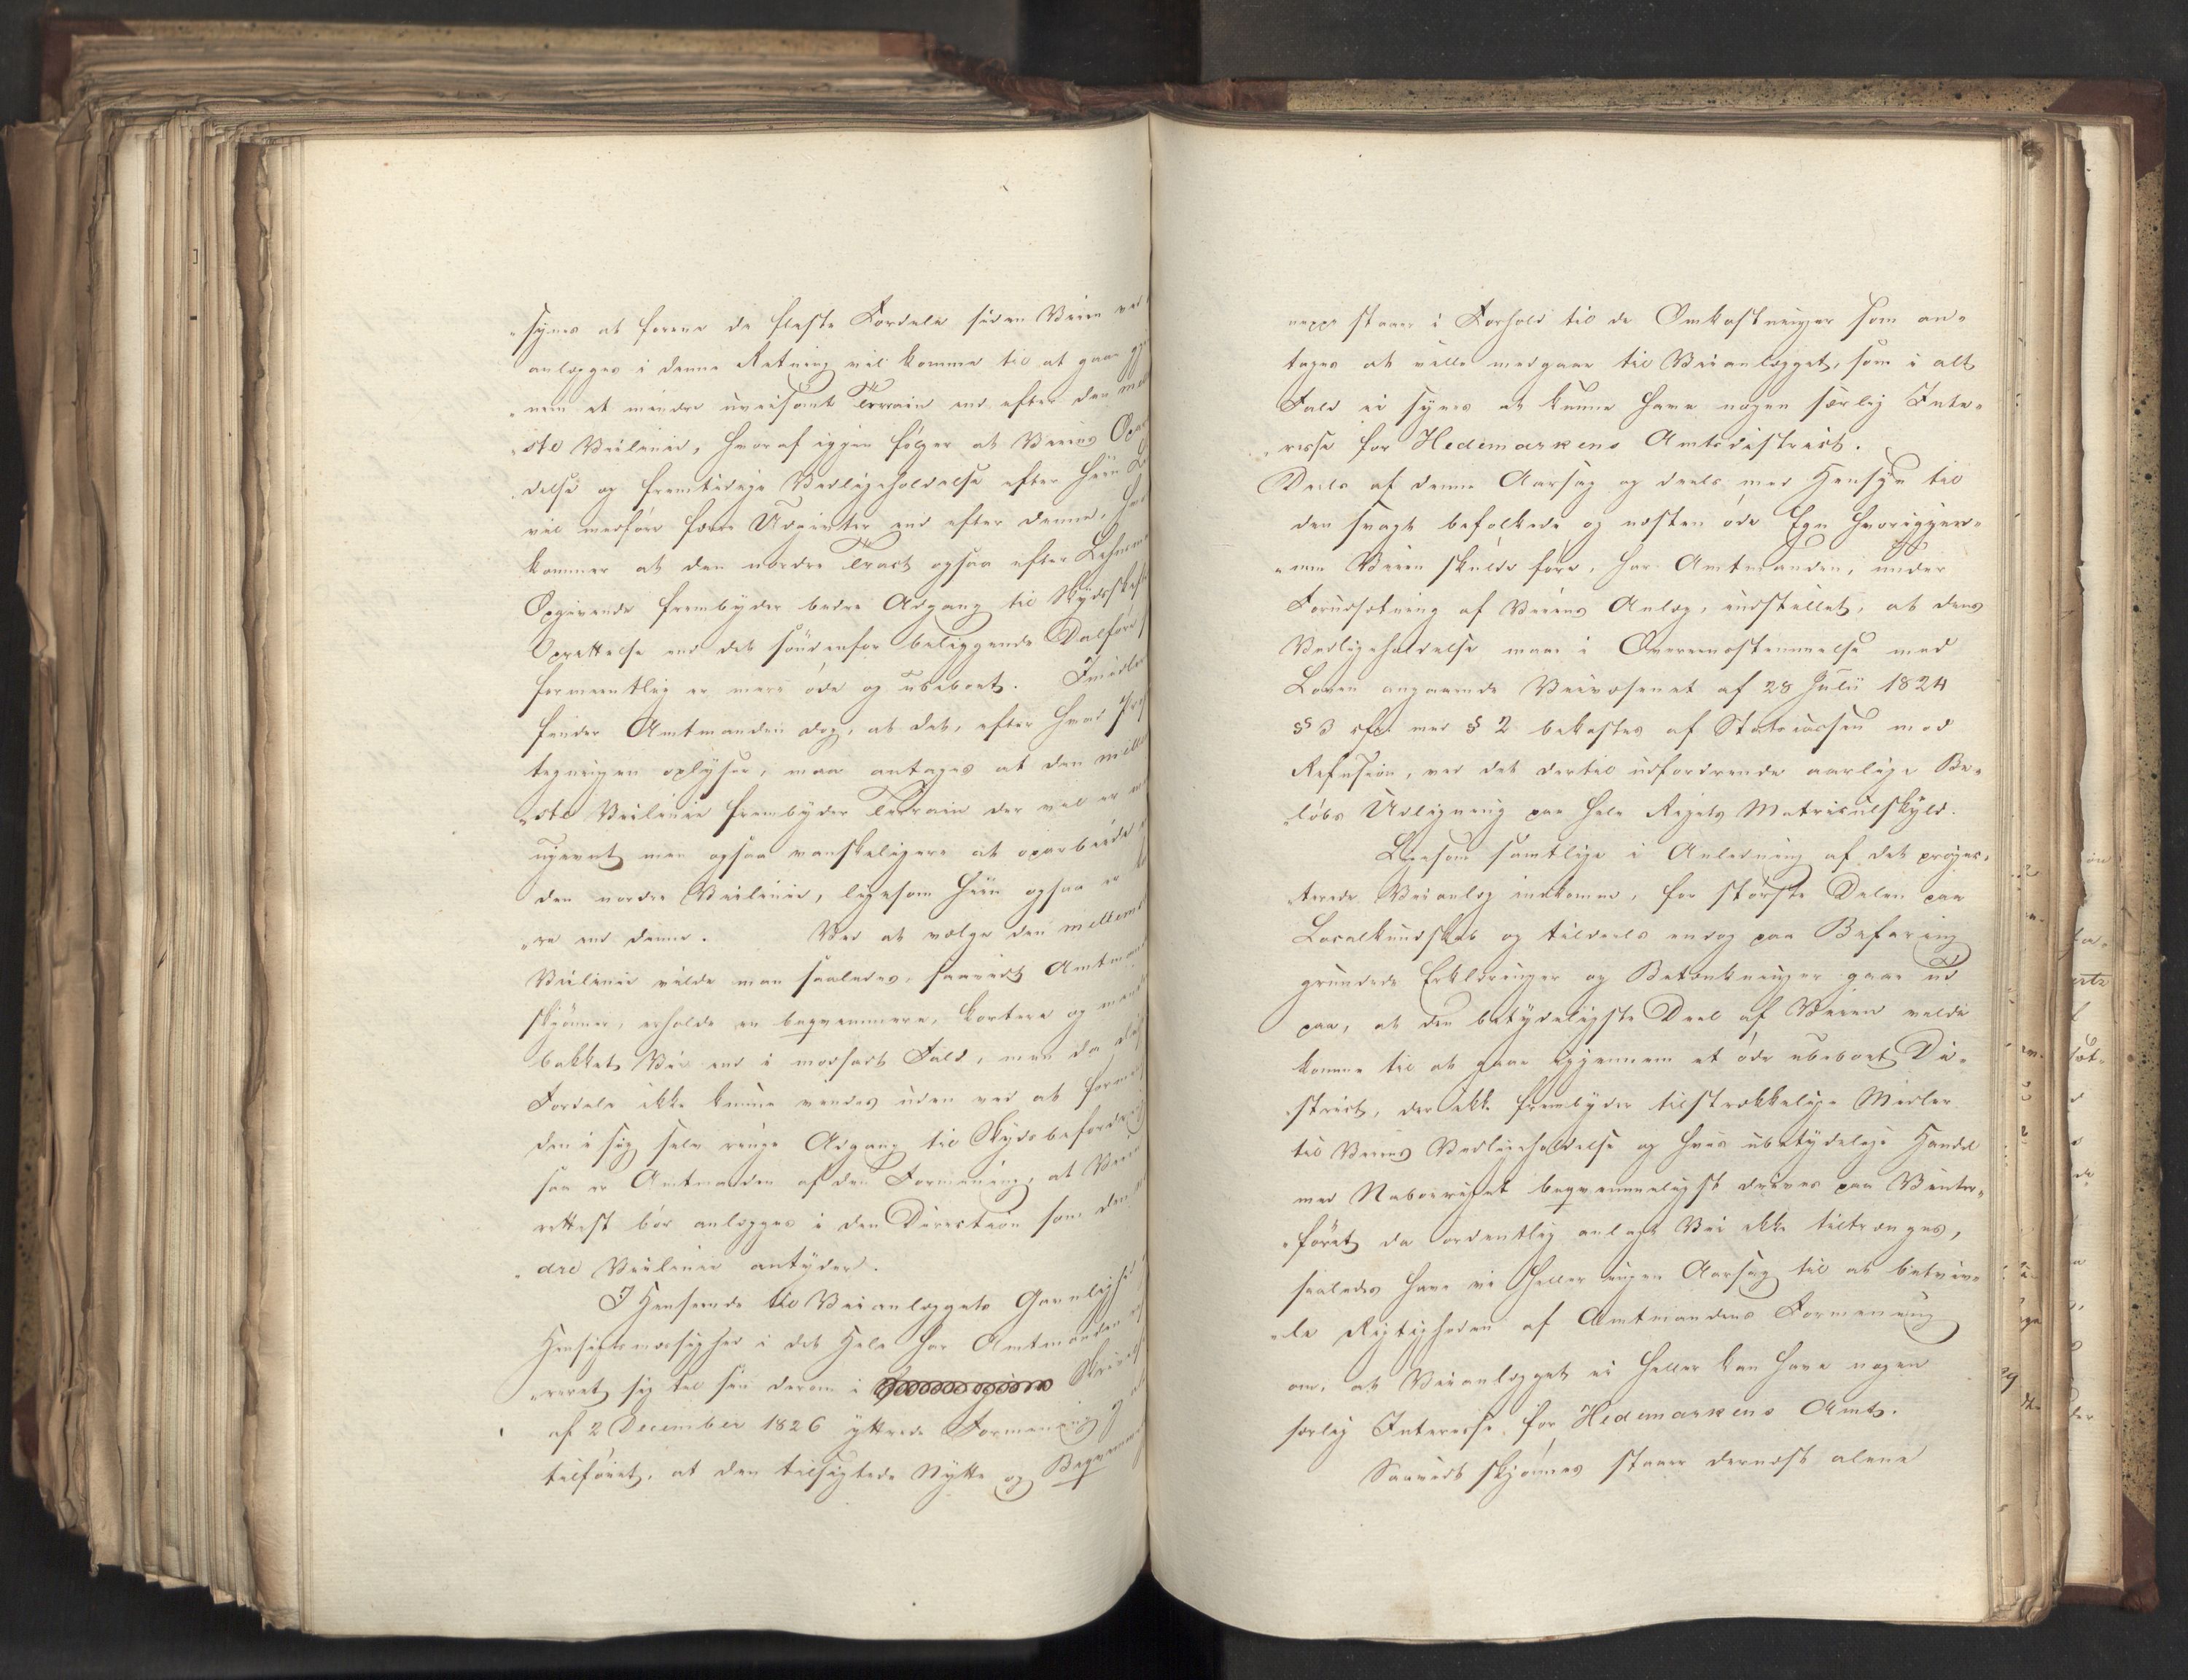 "synes at forene de fleste Fordele siden Veien ved
anlægges i denne Retning vil komme til at gaae gje
"nem et mindre uveisomt Terrain end efter den mel
"ste Veilinie, hvoraf igjen følger at Veiens Opar
"delse og fremtidige Vedligeholdelse efter hiin
vil medføre færre Udgivter end efter denne,
kommer at den nordre Tract ogsaa efter Lehnsm
Opgivende frembyder bedre Adgang til Skydsskaf
Oprettelse end det søndenfor beliggende Dalføre
formeentlig er mere øde og ubeboet. Imidler
finder Amtmanden dog, at det, efter hvad
tegningen oplyser, maa antages at den mell
"ste Veilinie frembyder Terrain der vel er
ujevnt men ogsaa vanskeligere at oparbeide
den nordre Veilinie, ligesom hiin ogsaa er
"re end denne. Ved at vælge den mellems
Veilinie vilde man saaledes, saavidt Amtman
skjønner, erholde en beqvemmere, kortere og
bakket Vei end i modsat Fald, men da
Fordele ikke kunne vindes uden ved at for
den i sig selv ringe Adgang til Skydsbefordring
saa er Amtmanden af den Formening, at Veien
rettest bør anlægges i den Direction som den
"dre Veilinie antyder.
I Henseende til Veianlæggets Gavnlighed
Hensigtsmæssighed i det Hele har Amtmanden
"reret sig til sin derom i Skrivelse
af 2 December 1826 yttrede Formening
tilføiet, at den tilsigtede Nytte og Beqvem
neppe staaer i Forhold til de Omkostninger som an-
tages at ville medgaae til Veianlægget, som i alt
Fald ei synes at kunne have nogen særlig Inte-
"resse for Hedemarkens Amtsdistrict.
Deels af denne Aarsag og deels med Hensyn til
den svagt befolkede og næsten øde Egn hvorigjen-
"nem Veien skulde føre, har Amtmanden, under
Forudsætning af Veiens Anlæg, indstillet, at dens
Vedligeholdelse maae i Overeensstemmelse med
Loven angaaende Veivæsenet af 28 Julii 1824
§ 3 cfr. med § 2 bekostes af Statscassen mod
Refusion, ved det dertil udfordrende aarlige Be-
"løbs Udligning paa hele Rigets Matriculskyld.
Ligesom samtlige i Anledning af det projec-
"terede Veianlæg indkomne, for største Delen paa
Localkundskab og tildeels endog paa Befaring
grundede Erklæringer og Betænkninger gaae ud
paa, at den betydeligste Deel af Veien vilde
komme til at gaae igjennem et øde ubeboet Di-
"strict, der ikke frembyder tilstrækkelige Midler
til Veiens Vedligeholdelse og hvis ubetydelige Handel
med Naboeriget beqvemmeligst drives paa Vinter-
"føret, da ordentlig anlagt Vei ikke tiltrænges,
saaledes have vi heller ingen Aarsag til at betviv-
"le Rigtigheden af Amtmandens Formening
om, at Veianlægget ei heller kan have nogen
særlig Interesse for Hedemarkens Amt.
Saavidt skjønnes staaer dernæst alene